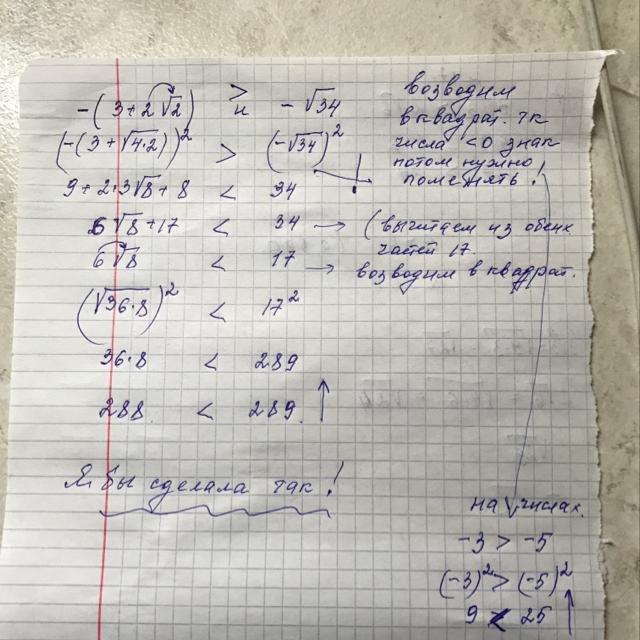 -(3+2√2) > и -√34
(-(3+√4·2))² > (-√34)²
9+2·3√8+8 < 34
6√8+17 < 34 → (вычитаем из обеих частей 17.
6√8 < 17 → возводим в квадрат.
(√36·8)² < 17²
36·8 < 289
288 < 289 ↑
возводим
в квадрат. тк
числа <0 знак
потом нужно
поменять!
Я бы сделала так!
на числах.
-3 > -5
(-3)² > (-5)²
9 < 25 ↑